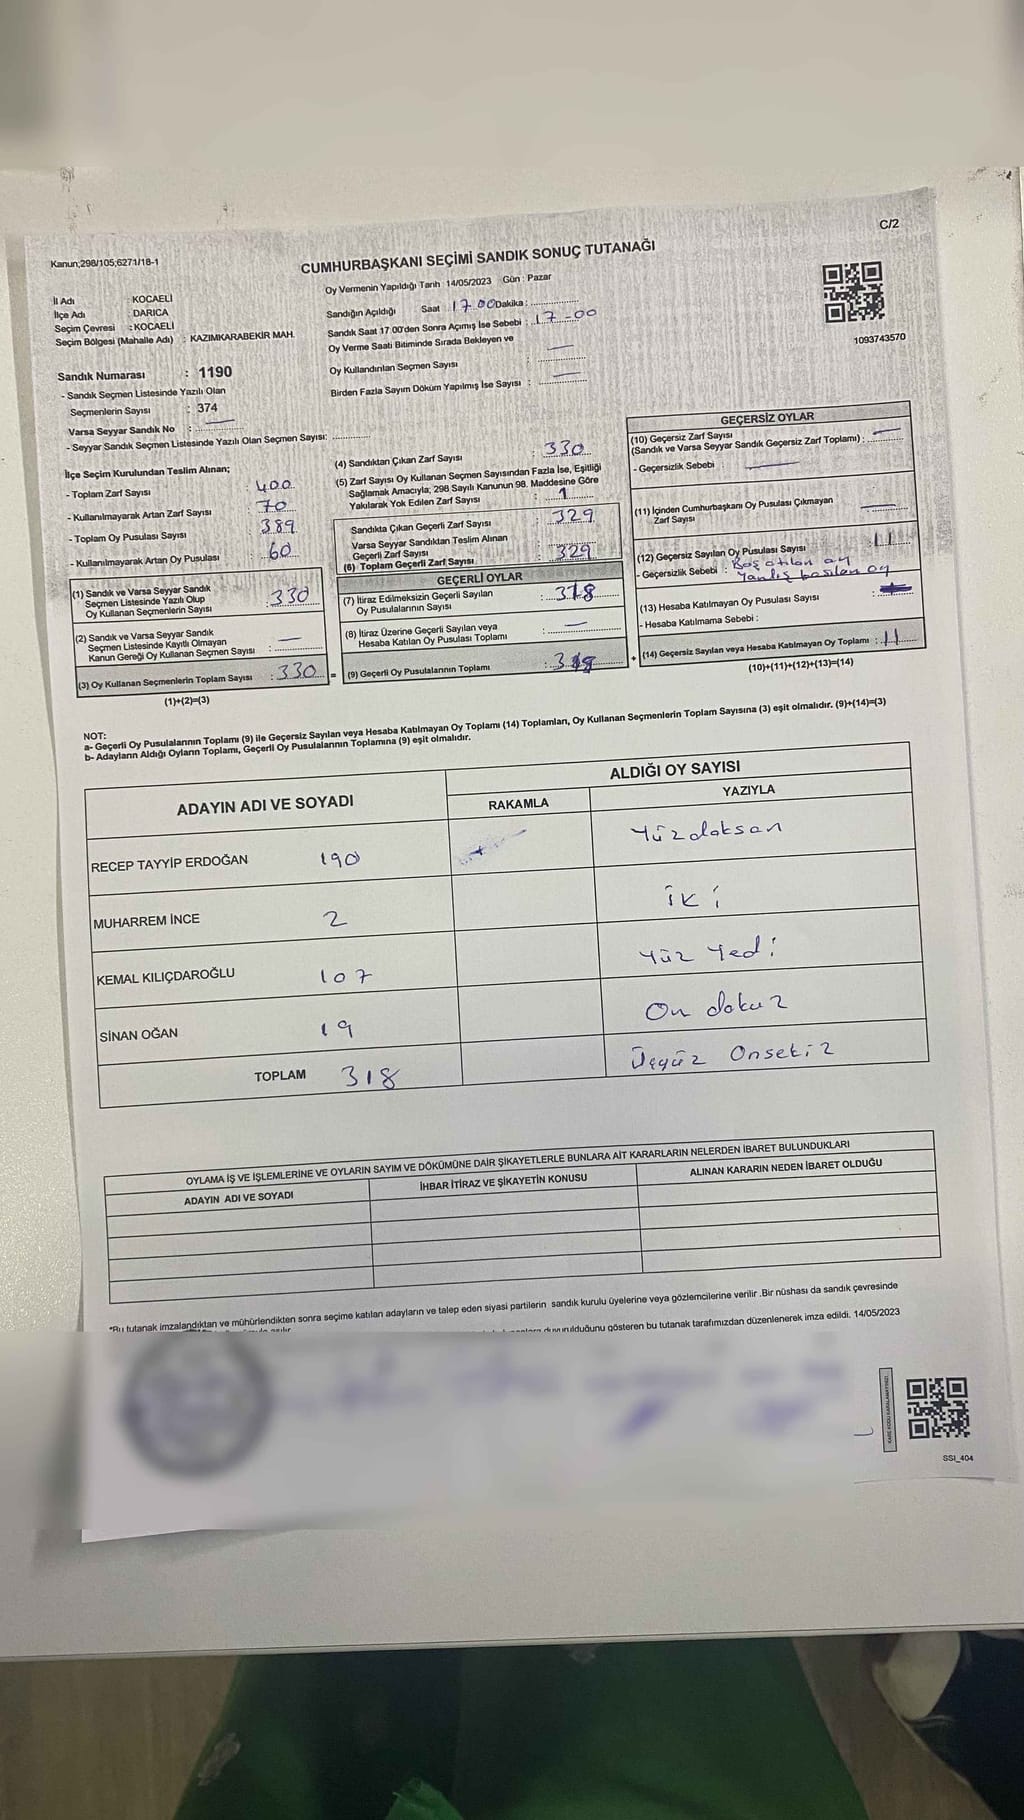 C/2
Kanun;298/105;6271/18-1
CUMHURBAŞKANI SEÇİMİ SANDIK SONUÇ TUTANAĞI
Oy Vermenin Yapıldığı Tarih 14/05/2023 Gün : Pazar
İl Adı : KOCAELİ
İlçe Adı : DARICA
Seçim Çevresi : KOCAELİ
Seçim Bölgesi (Mahalle Adı) : KAZIMKARABEKİR MAH.
Sandığın Açıldığı Saat : 17.00 Dakika :
Sandık Saat 17 00'den Sonra Açımış İse Sebebi : 17-00
Oy Verme Saati Bitiminde Sırada Bekleyen ve
Oy Kullandırılan Seçmen Sayısı : —
Birden Fazla Sayım Döküm Yapılmış İse Sayısı : —
1093743570
Sandık Numarası : 1190
- Sandık Seçmen Listesinde Yazılı Olan
Seçmenlerin Sayısı : 374
Varsa Seyyar Sandık No : —
- Seyyar Sandık Seçmen Listesinde Yazılı Olan Seçmen Sayısı:
İlçe Seçim Kurulundan Teslim Alınan;
- Toplam Zarf Sayısı : 400
- Kullanılmayarak Artan Zarf Sayısı : 70
- Toplam Oy Pusulası Sayısı : 389
- Kullanılmayarak Artan Oy Pusulası : 60
(1) Sandık ve Varsa Seyyar Sandık
Seçmen Listesinde Yazılı Olup
Oy Kullanan Seçmenlerin Sayısı : 330
(2) Sandık ve Varsa Seyyar Sandık
Seçmen Listesinde Kayıtlı Olmayan
Kanun Gereği Oy Kullanan Seçmen Sayısı : —
(3) Oy Kullanan Seçmenlerin Toplam Sayısı : 330 =
(1)+(2)=(3)
(4) Sandıktan Çıkan Zarf Sayısı : 330
(5) Zarf Sayısı Oy Kullanan Seçmen Sayısından Fazla İse, Eşitliği
Sağlamak Amacıyla; 298 Sayılı Kanunun 98. Maddesine Göre
Yakılarak Yok Edilen Zarf Sayısı : 1
Sandıkta Çıkan Geçerli Zarf Sayısı : 329
Varsa Seyyar Sandıktan Teslim Alınan
Geçerli Zarf Sayısı
(6) Toplam Geçerli Zarf Sayısı : 329
GEÇERLİ OYLAR
(7) İtiraz Edilmeksizin Geçerli Sayılan
Oy Pusulalarının Sayısı : 318
(8) İtiraz Üzerine Geçerli Sayılan veya
Hesaba Katılan Oy Pusulası Toplamı : —
(9) Geçerli Oy Pusulalarının Toplamı : 318 +
GEÇERSİZ OYLAR
(10) Geçersiz Zarf Sayısı
(Sandık ve Varsa Seyyar Sandık Geçersiz Zarf Toplamı) : —
- Geçersizlik Sebebi —
(11) İçinden Cumhurbaşkanı Oy Pusulası Çıkmayan
Zarf Sayısı : —
(12) Geçersiz Sayılan Oy Pusulası Sayısı : 11
- Geçersizlik Sebebi : Boş atılan oy
Yanlış basılan oy
(13) Hesaba Katılmayan Oy Pusulası Sayısı :
- Hesaba Katılmama Sebebi :
(14) Geçersiz Sayılan veya Hesaba Katılmayan Oy Toplamı : 11
(10)+(11)+(12)+(13)=(14)
NOT:
a- Geçerli Oy Pusulalarının Toplamı (9) ile Geçersiz Sayılan veya Hesaba Katılmayan Oy Toplamı (14) Toplamları, Oy Kullanan Seçmenlerin Toplam Sayısına (3) eşit olmalıdır. (9)+(14)=(3)
b- Adayların Aldığı Oyların Toplamı, Geçerli Oy Pusulalarının Toplamına (9) eşit olmalıdır.
ADAYIN ADI VE SOYADI
ALDIĞI OY SAYISI
RAKAMLA YAZIYLA
RECEP TAYYİP ERDOĞAN 190 Yüzdoksan
MUHARREM İNCE 2 İki
KEMAL KILIÇDAROĞLU 107 Yüz Yedi
SİNAN OĞAN 19 On dokuz
TOPLAM 318 Üçyüz Onsekiz
OYLAMA İŞ VE İŞLEMLERİNE VE OYLARIN SAYIM VE DÖKÜMÜNE DAİR ŞİKAYETLERLE BUNLARA AİT KARARLARIN NELERDEN İBARET BULUNDUKLARI
ADAYIN ADI VE SOYADI İHBAR İTİRAZ VE ŞİKAYETİN KONUSU ALINAN KARARIN NEDEN İBARET OLDUĞU
*Bu tutanak imzalandıktan ve mühürlendikten sonra seçime katılan adayların ve talep eden siyasi partilerin sandık kurulu üyelerine veya gözlemcilerine verilir .Bir nüshası da sandık çevresinde
duyurulduğunu gösteren bu tutanak tarafımızdan düzenlenerek imza edildi. 14/05/2023
SSI_404